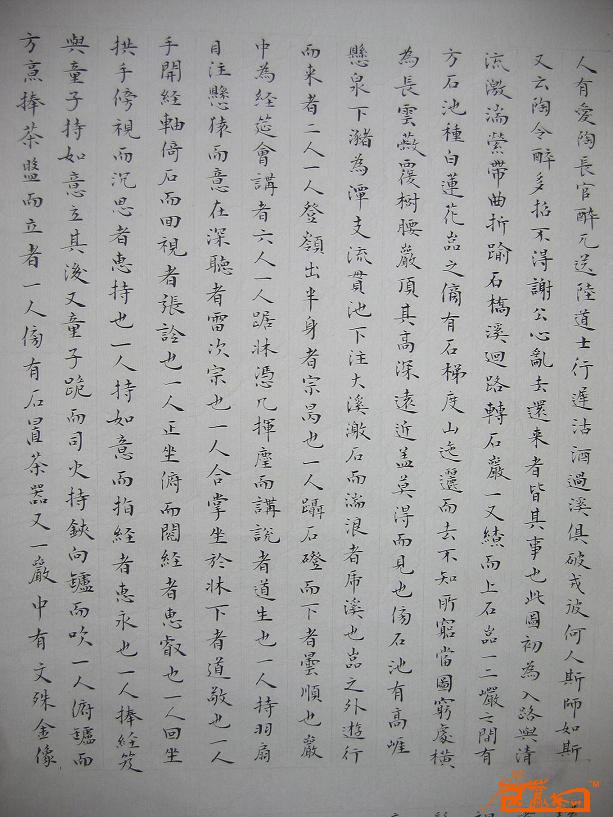 人有愛陶長官醉兀送陸道士行遲沽酒過溪俱破戒彼何人斯師如斯
又云陶令醉多招不得謝公心亂去還來者皆其事也此圖初為入路與清
流激湍縈帶曲折踰石橋溪迴路轉石巖一又績而上石嵓一二巖之間有
方石池種白蓮花嵓之傍有石梯度山迤邐而去不知所窮當圖窮處橫
為長雲蔽覆樹腰巖頂其高深遠近蓋莫得而見也傍石池有高崖
懸泉下瀦為潭支流貫池下注大溪激石而湍浪者虎溪也嵓之外遊行
而来者二人一人登嶺出半身者宗昺也一人躡石磴而下者曇順也巖
中為經筵會講者六人一人踞牀憑几揮麈而講說者道生也一人持羽扇
目注懸猿而意在深聽者雷次宗也一人合掌坐於牀下者道敬也一人
手開經軸倚石而回視者張詮也一人正坐俯而閱經者惠叡也一人回坐
拱手傍視而沉思者惠持也一人持如意而指經者惠永也一人捧經笈
與童子持如意立其後又童子跪而司火持鋏向鑪而吹一人俯鑪而
方烹捧茶盤而立者一人傍有石置茶器又一巖中有文殊金像